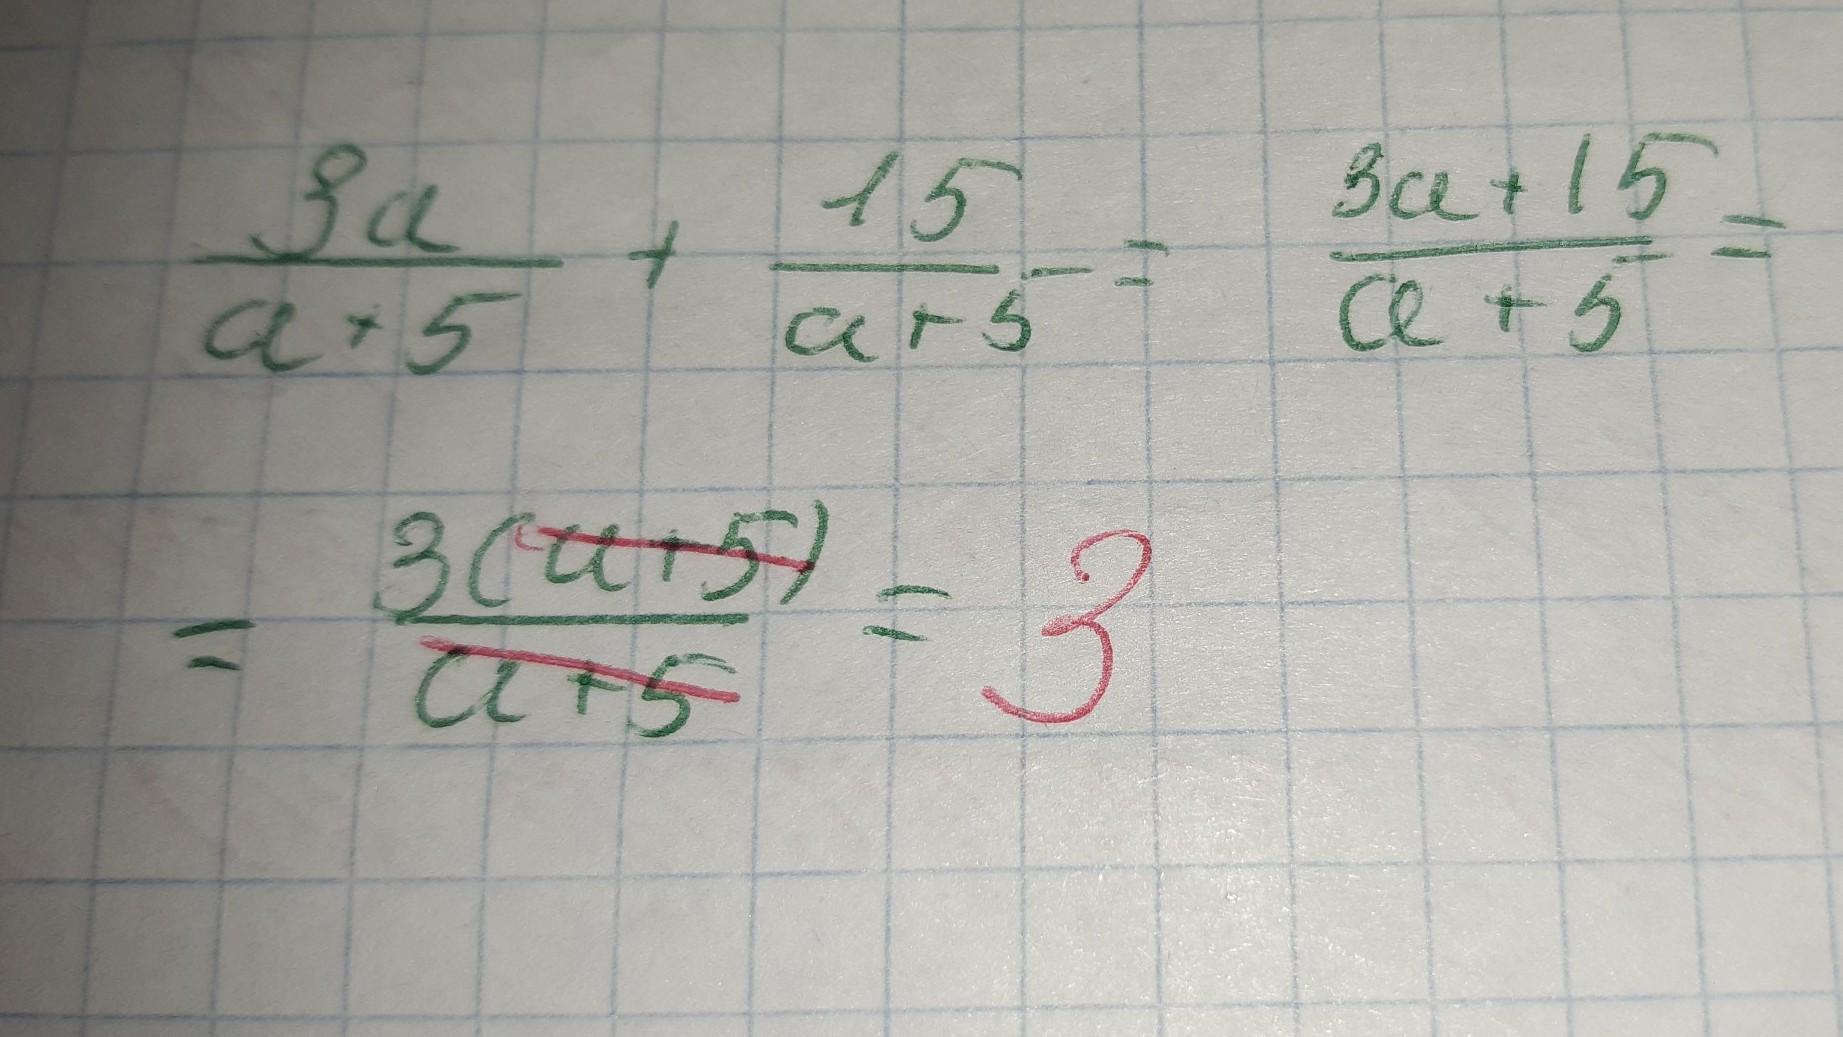 3a/(a+5) + 15/(a+5) = (3a+15)/(a+5) =
= 3(a+5)/(a+5) = 3